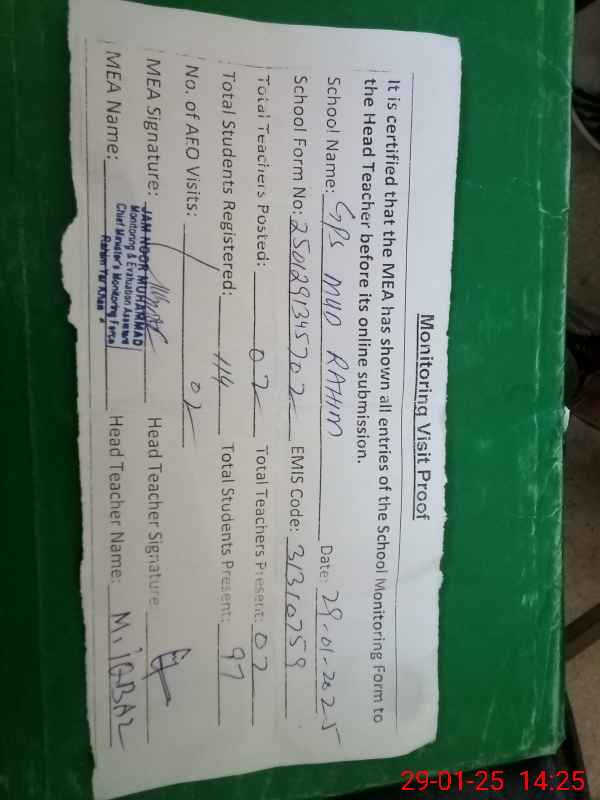 Monitoring Visit Proof
It is certified that the MEA has shown all entries of the School Monitoring Form to
the Head Teacher before its online submission.
School Name: GPS MUD RAHIM Date: 29-01-2025
School Form No: 2501291345702 EMIS Code: 31310759
Total Teachers Posted: 02 Total Teachers Present: 02
Total Students Registered: 114 Total Students Present: 97
No. of AEO Visits: 02
MEA Signature: Head Teacher Signature:
MEA Name: Head Teacher Name: M. IQBAL
JAM NOOR MUHAMMAD
Monitoring & Evaluation Assistant
Chief Minister's Monitoring Force
Rahim Yar Khan
29-01-25 14:25